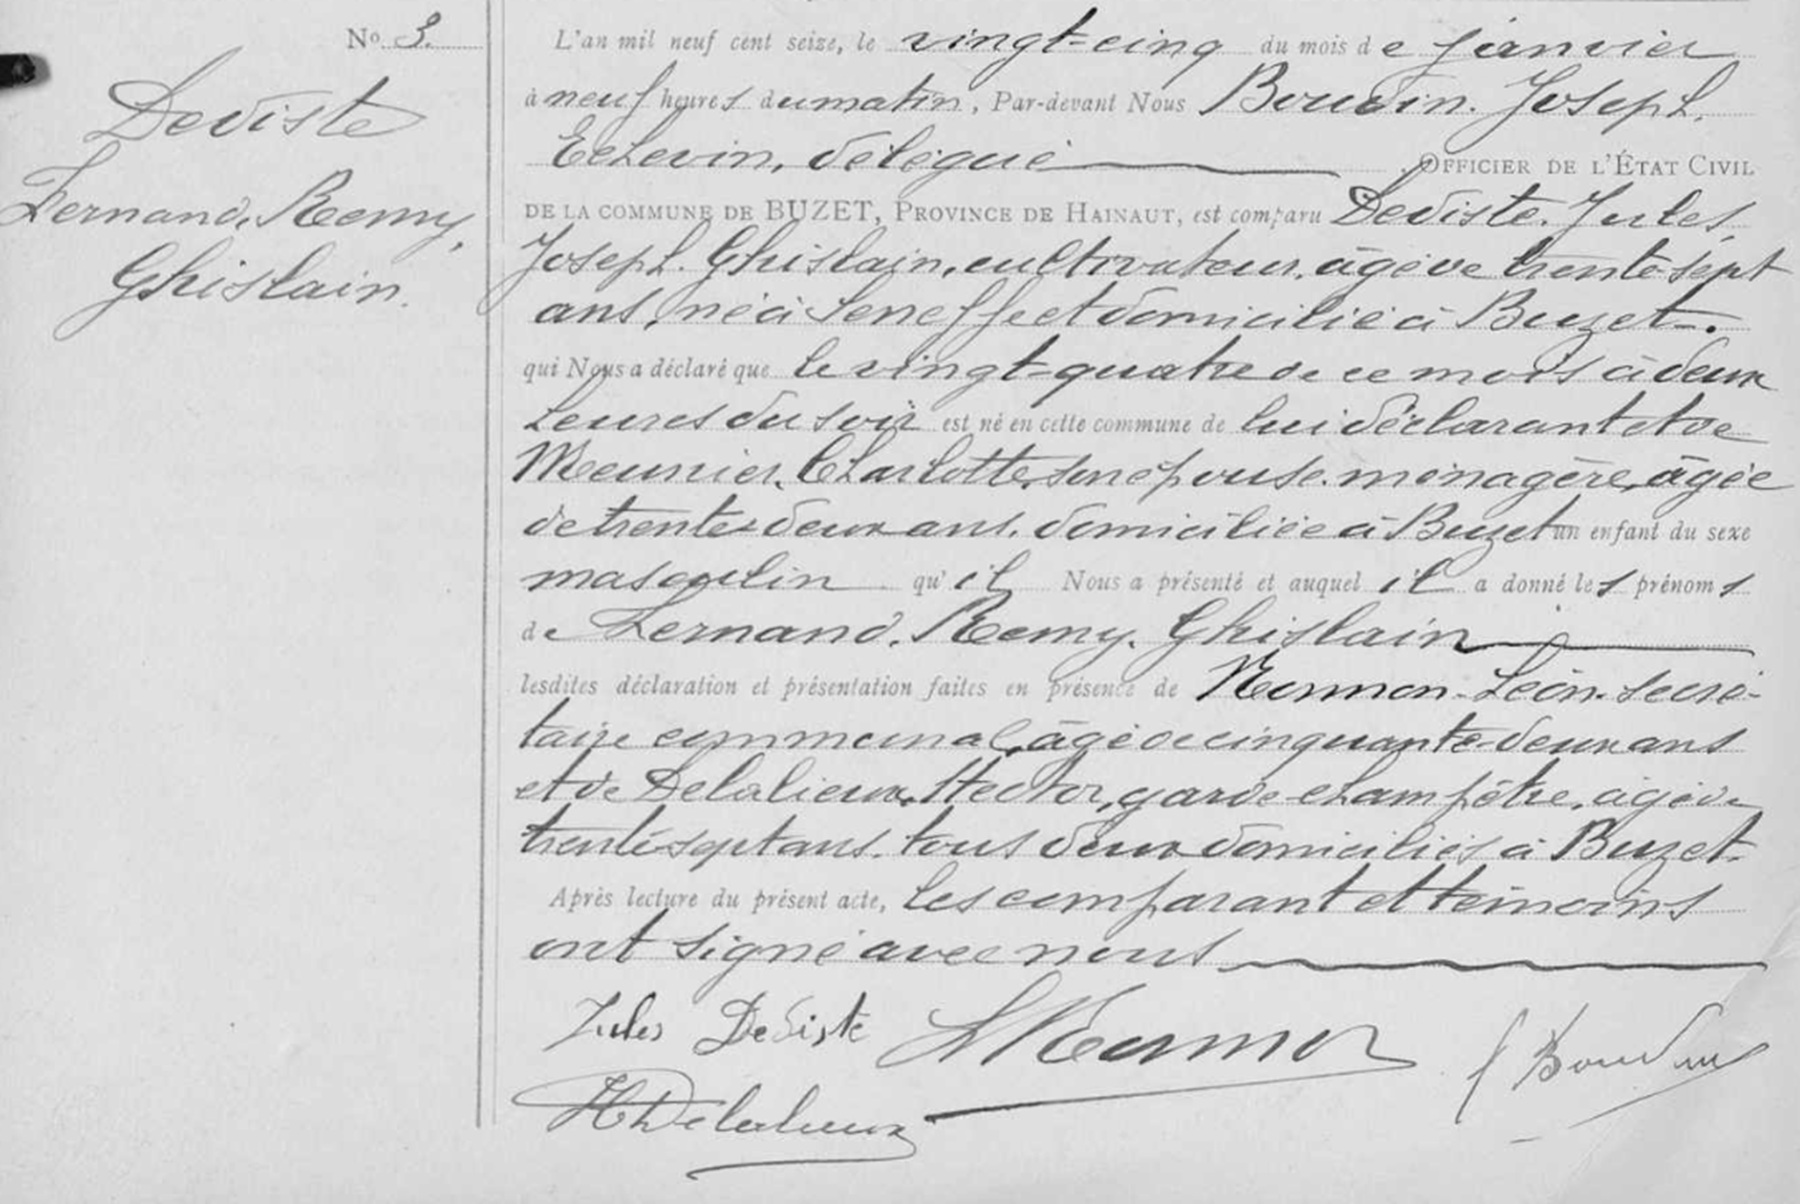 N° 3.
Dediste
Fernand, Remy,
Ghislain.
L'an mil neuf cent seize, le vingt-cinq du mois de janvier
à neuf heures du matin, Par-devant Nous Boudin. Joseph,
Echevin, délégué OFFICIER DE L'ÉTAT CIVIL
DE LA COMMUNE DE BUZET, PROVINCE DE HAINAUT, est comparu Dediste. Jules,
Joseph. Ghislain, cultivateur, âgé de trente-sept
ans, né à Seneffe et domicilié à Buzet.
qui Nous a déclaré que le vingt-quatre de ce mois à deux
heures du soir est né en cette commune de lui déclarant et de
Meunier, Charlotte, son épouse. ménagère, âgée
de trente-deux ans, domiciliée à Buzet un enfant du sexe
masculin qu'il Nous a présenté et auquel il a donné les prénoms
de Fernand, Remy, Ghislain
lesdites déclaration et présentation faites en présence de Léon. secré-
taire communal, âgé de cinquante-deux ans
et de Delalieux, Hector, garde-champêtre, âgé de
trente-sept ans. tous deux domiciliés à Buzet.
Après lecture du présent acte, les comparant et témoins
ont signé avec nous
Jules Dediste
J Boudin
H Delalieux